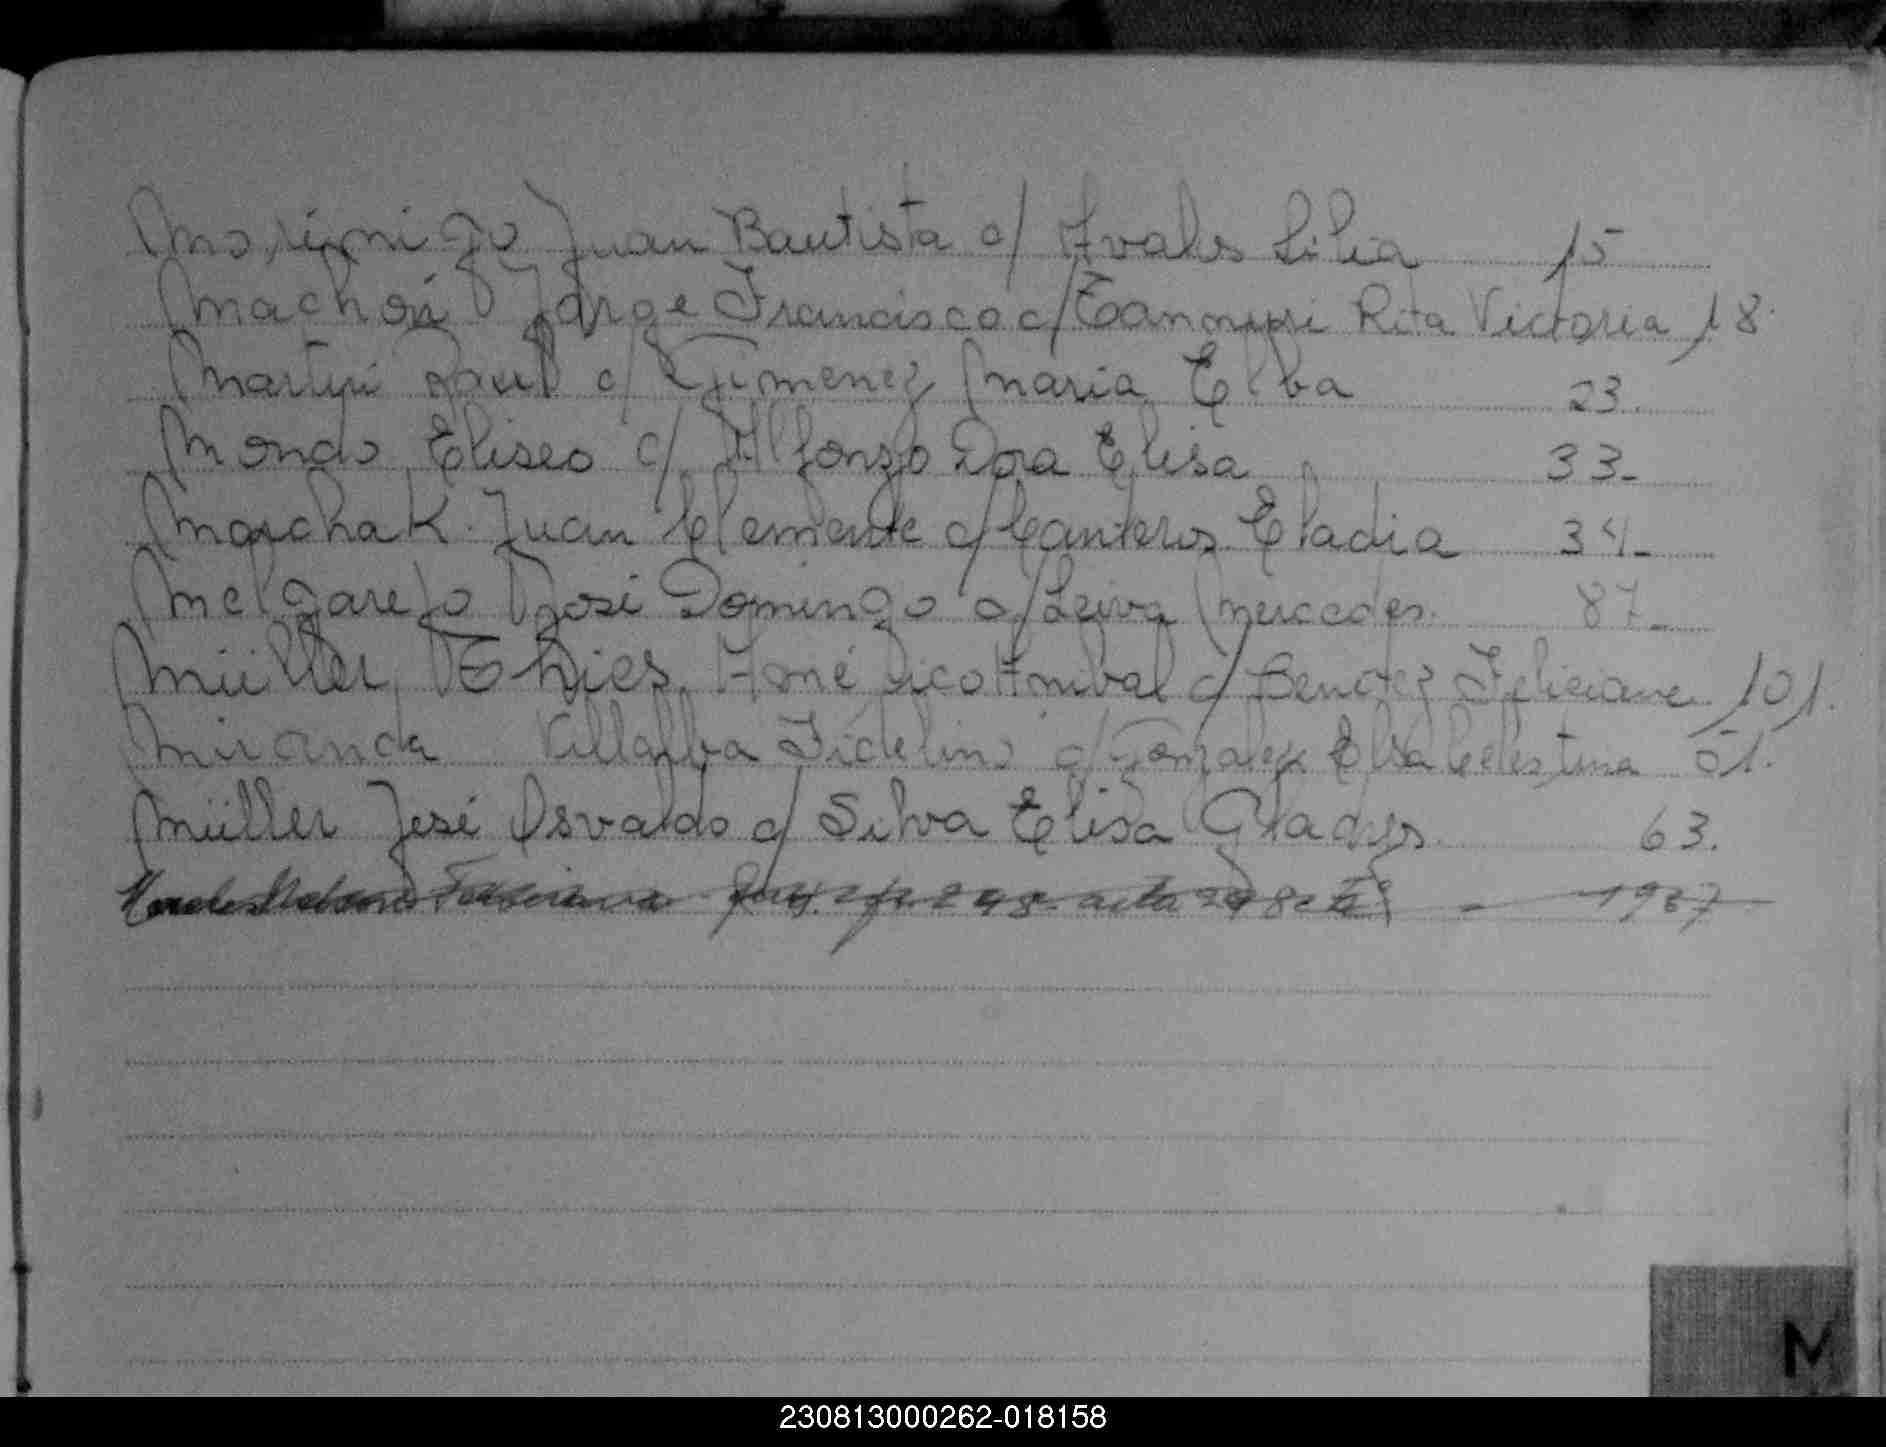 Morinigo Juan Bautista c/ Avalos Lilia 15
Machón Jorge Francisco c/ Rita Victoria 18
Martini Raul c/ Gimenez Maria Elba 23.
Mondo Eliseo c/ Alfonzo Dora Elisa 33-
Marchak Juan Clemente c/ Canteros Eladia 34-
Melgarejo José Domingo c/ Leiva Mercedes. 87-
Müller Thies, Anibal c/ Benitez Feliciana 101.
Miranda Villalba Fidelino c/ Gonzalez Elsa Celestina 51.
Müller José Osvaldo c/ Silva Elisa Gladys. 63.
acta 1937
M
230813000262-018158